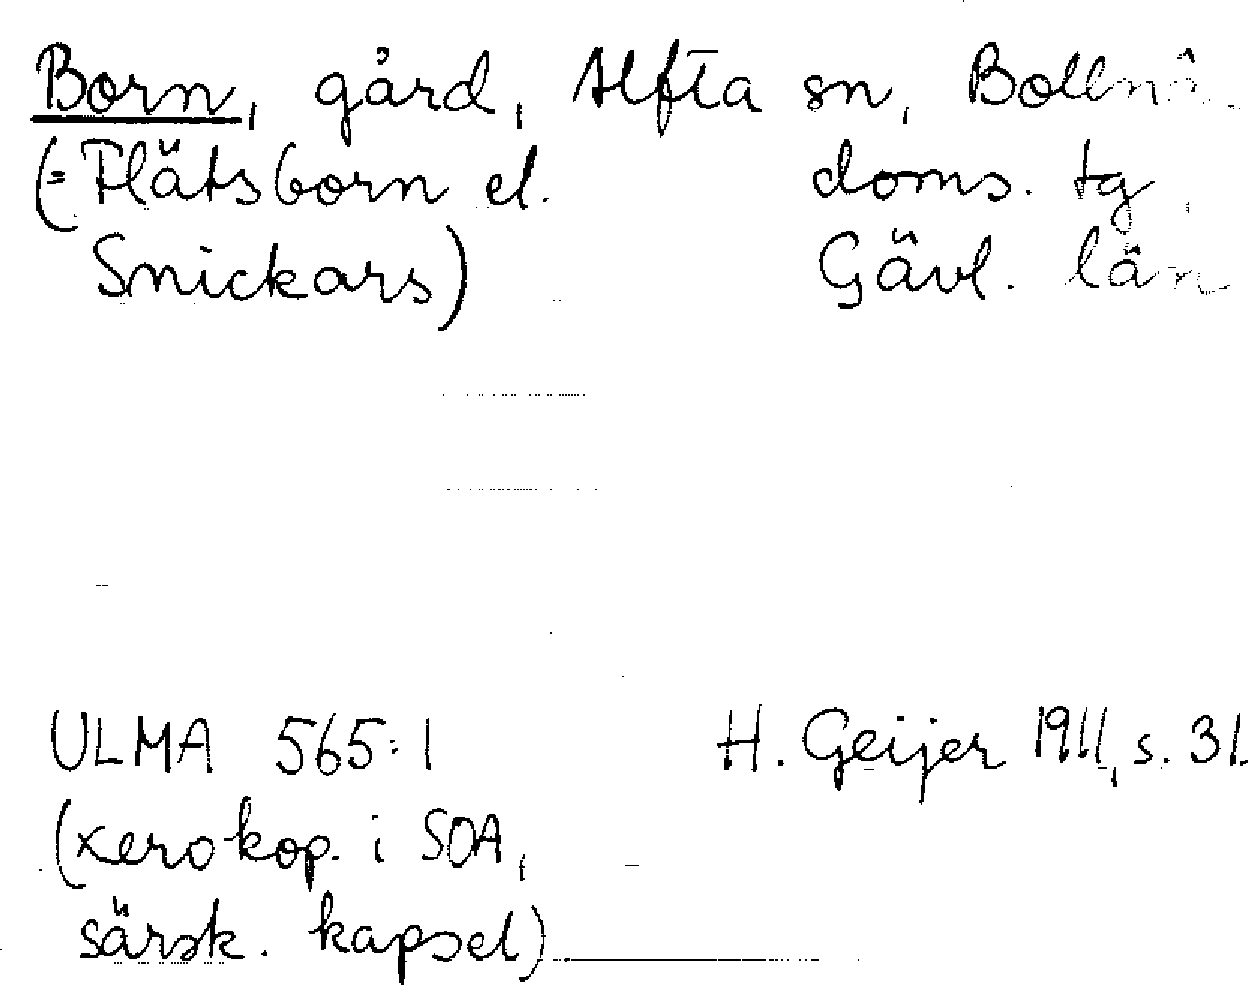 Born, gård, Alfta sn, Bollnä
(= Flätsborn el. doms. tg,
Snickars) Gävl. län
ULMA 565:1 H. Geijer 1911, s. 31.
(xerokop. i SOA,
särsk. kapsel)